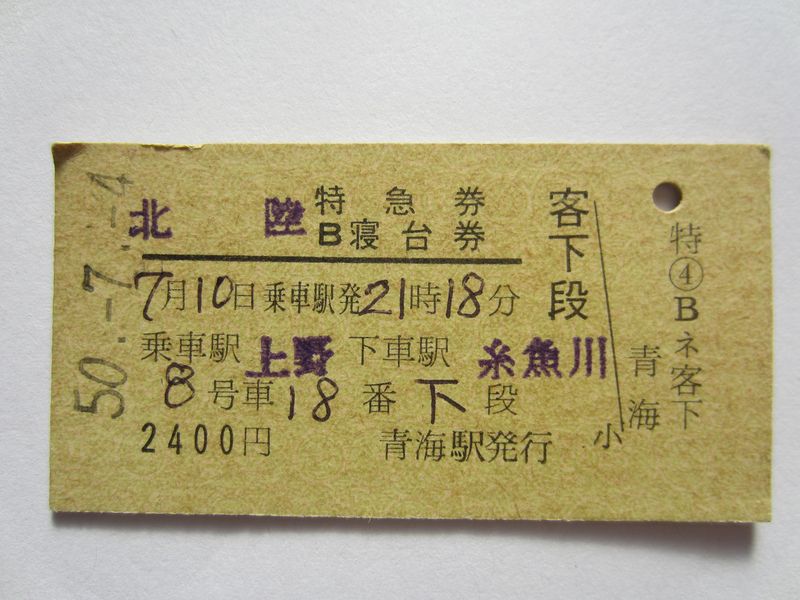 50.-7.-4
北陸 特急券
B寝台券
客下段
7月10日乗車駅発21時18分
乗車駅 上野 下車駅 糸魚川
8号車18番下段
2400円 青海駅発行
小
特④Bネ客下
青海